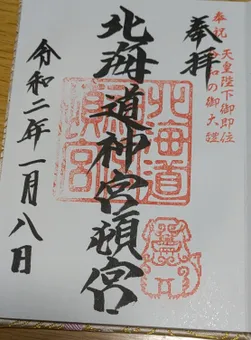 奉拝
奉祝 天皇陛下御即位
令和の御大禮
北海道神宮頓宮
北海道
頓宮
令和二年一月八日